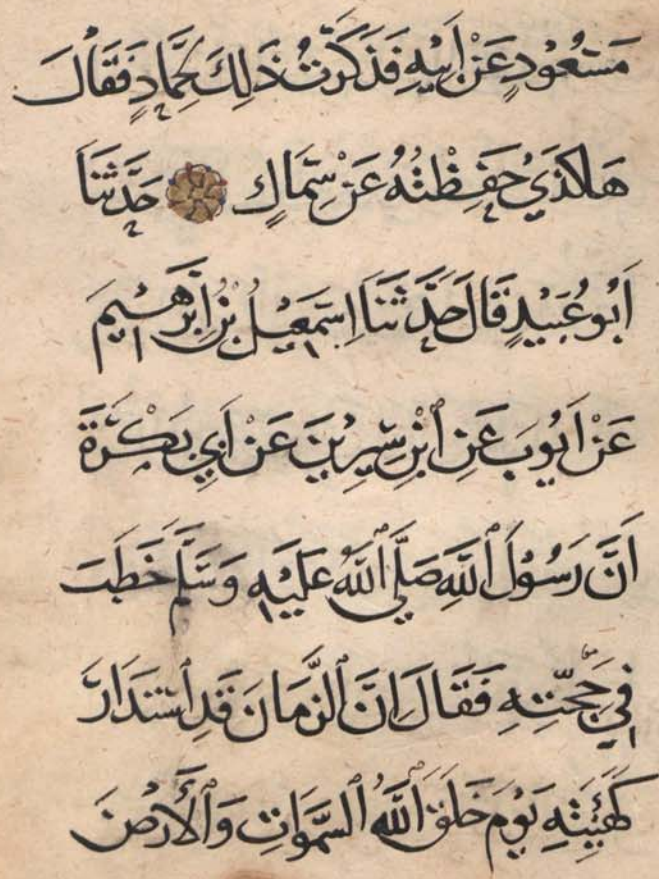 مَسْعُوْدٍ عَنْ اَبِيْهِ فَذَكَرْتُ ذَلِكَ لِحَمَّادٍ فَقَالَ
هَاكَذَيْ حَفِظْتُهُ عَنْ سِمَاكٍ حَدَّثَنَا
اَبُو عُبَيْدٍ قَالَ حَدَّثَنَا اِسْمَعِيْلُ بْنُ اِبْرَهِيْمَ
عَنْ اَيُوبَ عَنِ ابْنِ سِيْرِيْنَ عَنْ اَبِي بَكْرَةَ
اَنَّ رَسُوْلَ اللَّهِ صَلَّي اللَّهُ عَلَيْهِ وَسَلَّمَ خَطَبَ
فِي حَجَّتِهِ فَقَالَ اِنَّ الزَّمَانَ قَدِ اسْتَدَارَ
كَهَيْئَتِهِ يَوْمَ خَلَقَ اللَّهُ السَّمَوَاتِ وَالْأَرْضَ